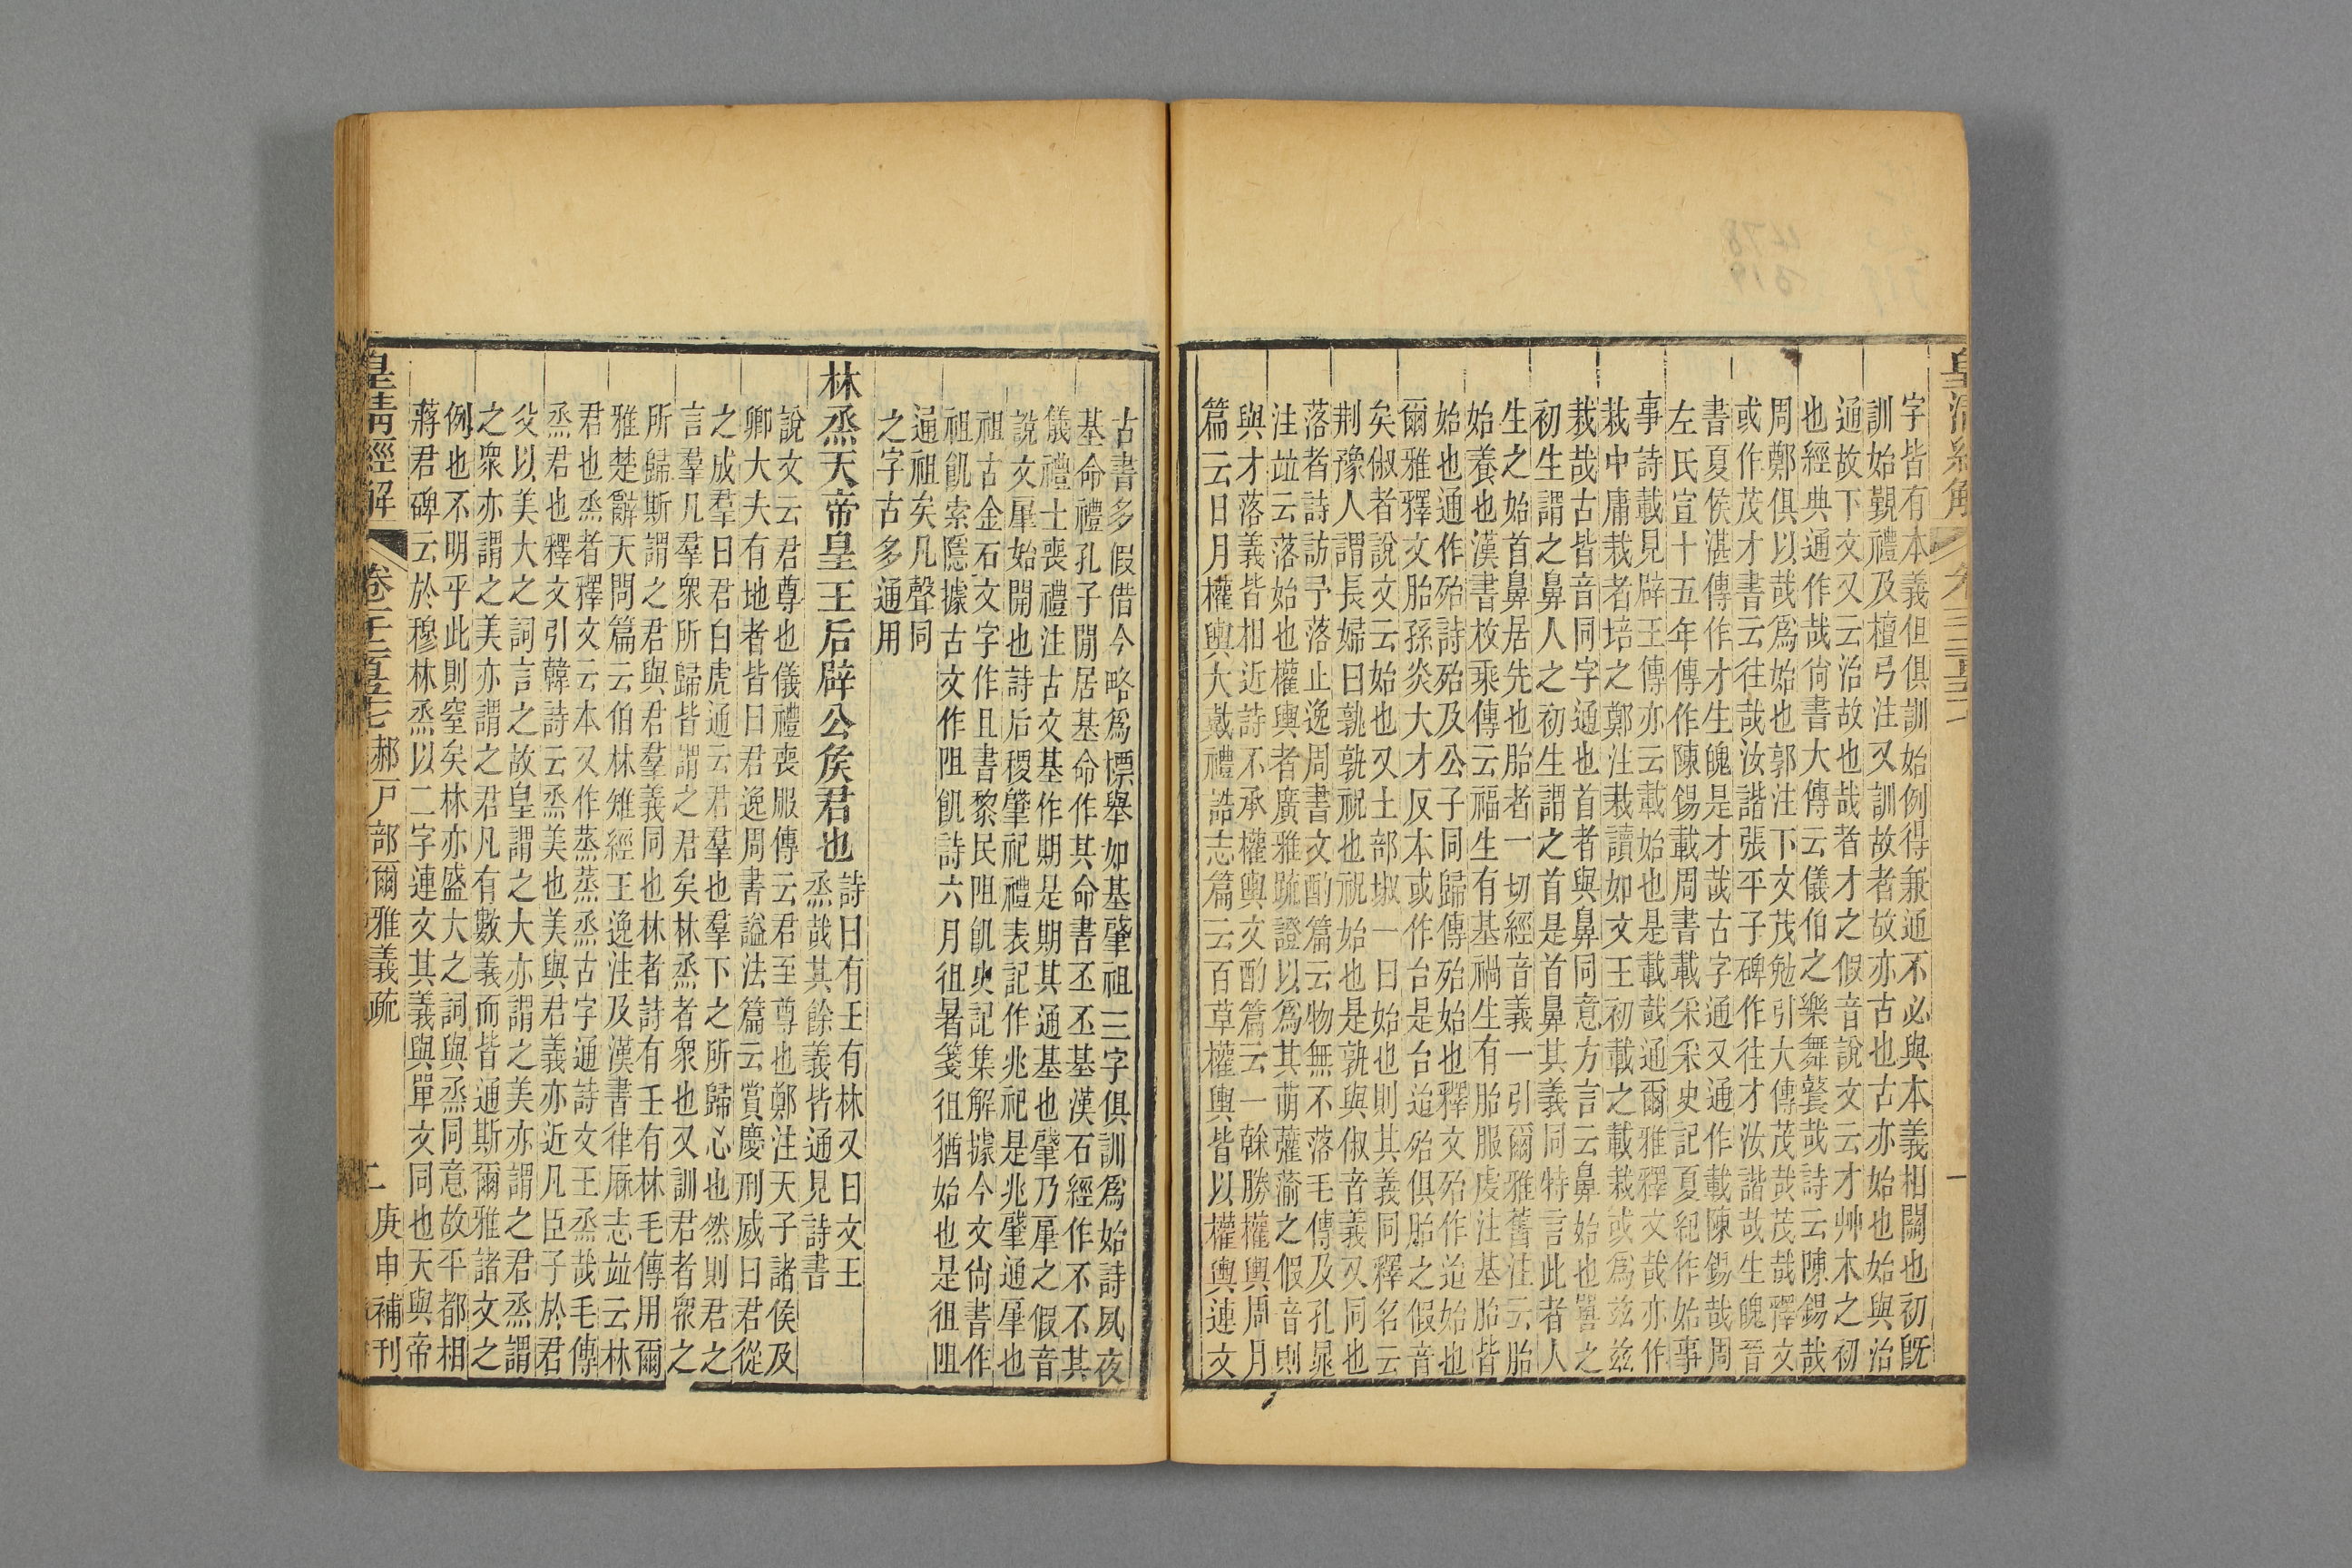 字皆有本義但俱訓始例得兼通不必與本義相關也初旣
訓始覲禮及檀弓注又訓故者故亦古也古亦始也始與治
通故下文又云治故也哉者才之假音說文云才艸木之初
也經典通作哉尙書大傳云儀伯之樂舞鼚哉詩云陳錫哉
周鄭俱以哉爲始也郭注下文茂勉引大傳茂哉茂哉釋文
或作茂才書云往哉汝諧張平子碑作往才汝諧哉生魄晉
書夏侯湛傳作才生魄是才哉古字通又通作載陳錫哉周
左氏宣十五年傳作陳錫載周書載采采史記夏紀作始事
事詩載見辟王傳亦云載始也是載哉通爾雅釋文哉亦作
栽中庸栽者培之鄭注栽讀如文王初載之載栽或爲茲茲
栽哉古皆音同字通也首者與鼻同意方言云鼻始也嘼之
初生謂之鼻人之初生謂之首是首鼻其義同特言此者人
生之始首鼻居先也胎者一切經音義一引爾雅舊注云胎
始養也漢書枚乘傳云福生有基禍生有胎服虔注基胎皆
始也通作殆詩殆及公子同歸傳殆始也釋文殆作迨始也
爾雅釋文胎孫炎大才反本或作台是台迨殆俱胎之假音
矣俶者說文云始也又土部埱一曰始也則其義同釋名云
荆豫人謂長婦曰孰孰祝也祝始也是孰與俶音義又同也
落者詩訪予落止逸周書文酌篇云物無不落毛傳及孔晁
注竝云落始也權輿者廣雅疏證以爲其萌虇蕍之假音則
與才落義皆相近詩不承權輿文酌篇云一榦勝權輿周月
篇云日月權輿大戴禮誥志篇云百草權輿皆以權輿連文
古書多假借今略爲慓舉如基肇祖三字俱訓爲始詩夙夜
基命禮孔子閒居基命作其命書丕丕基漢石經作不不其
儀禮士喪禮注古文基作期是期其通基也肇乃肁之假音
說文肁始開也詩后稷肇祀禮表記作兆祀是兆肇通肁也
祖古金石文字作且書黎民阻飢史記集解據今文尙書作
祖飢索隱據古文作阻飢詩六月徂暑箋徂猶始也是徂阻
通祖矣凡聲同
之字古多通用
林烝天帝皇王后辟公侯君也 詩曰有壬有林又曰文王
烝哉其餘義皆通見詩書
說文云君尊也儀禮喪服傳云君至尊也鄭注天子諸侯及
卿大夫有地者皆曰君逸周書謚法篇云賞慶刑威曰君從
之成羣曰君白虎通云君羣也羣下之所歸心也然則君之
言羣凡羣衆所歸皆謂之君矣林烝者衆也又訓君者衆之
所歸斯謂之君與君羣義同也林者詩有壬有林毛傳用爾
雅楚辭天問篇云伯林雉經王逸注及漢書律厤志竝云林
君也烝者釋文云本又作蒸蒸烝古字通詩文王烝哉毛傳
烝君也釋文引韓詩云烝美也美與君義亦近凡臣子於君
父以美大之詞言之故皇謂之大亦謂之美亦謂之君烝謂
之衆亦謂之美亦謂之君凡有數義而皆通斯爾雅諸文之
例也不明乎此則窒矣林亦盛大之詞與烝同意故平都相
蔣君碑云於穆林烝以二字連文其義與單文同也天與帝
皇淸經解 郝戶部爾雅義疏 二 庚申補刊